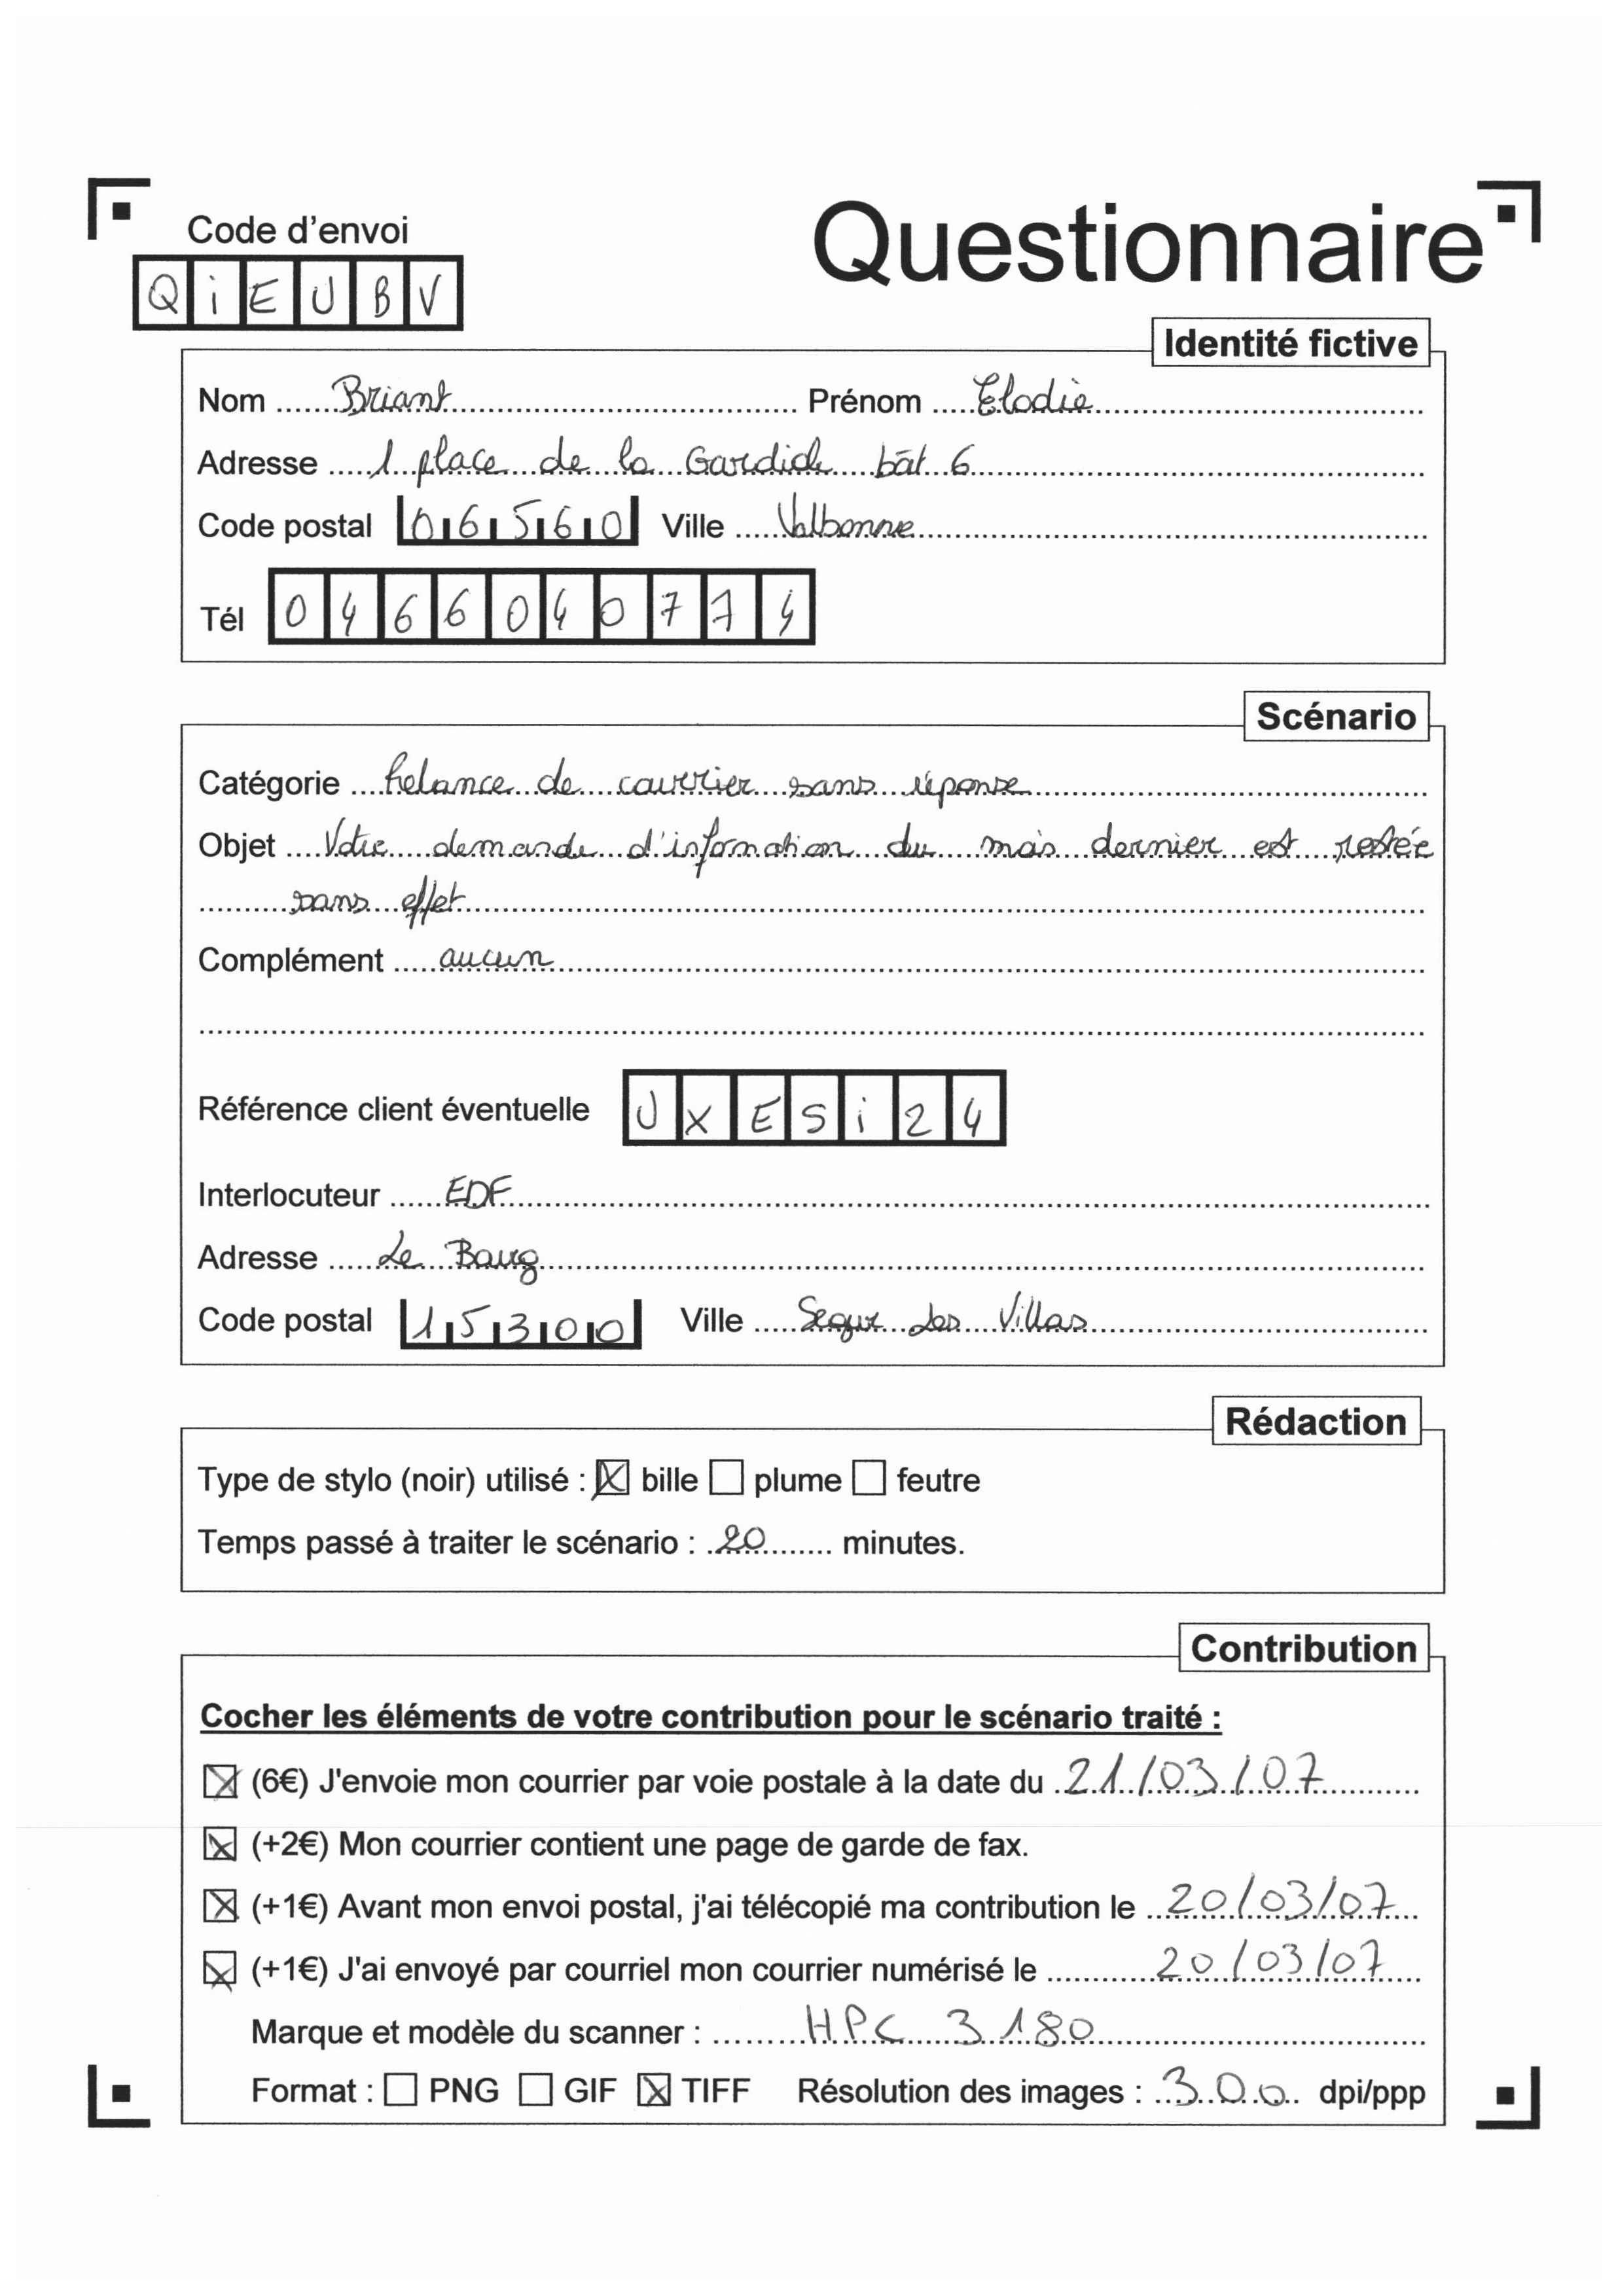 Code d'envoi
Questionnaire
QiEUBV
Identité fictive
Nom Briant Prénom Elodie
Adresse 1 place de la Gardiole bât 6
Code postal 06560 Ville Valbonne
Tél 0466040774
Scénario
Catégorie Relance de courrier sans réponse
Objet Votre demande d'information du mois dernier est restée
sans effet
Complément aucun
Référence client éventuelle UXESi24
Interlocuteur EDF
Adresse Le Bourg
Code postal 15300 Ville Segur Les Villas
Rédaction
Type de stylo (noir) utilisé : bille plume feutre
Temps passé à traiter le scénario : 20 minutes.
Contribution
Cocher les éléments de votre contribution pour le scénario traité :
(6€) J'envoie mon courrier par voie postale à la date du 21/03/07
(+2€) Mon courrier contient une page de garde de fax.
(+1€) Avant mon envoi postal, j'ai télécopié ma contribution le 20/03/07
(+1€) J'ai envoyé par courriel mon courrier numérisé le 20/03/07
Marque et modèle du scanner : HPC 3180
Format : PNG GIF TIFF Résolution des images : 300 dpi/ppp